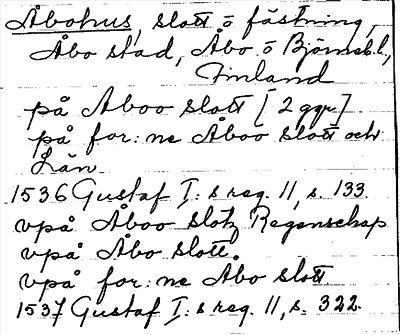 Åbohus, slott o fästning,
Åbo stad, Åbo o Björneb. l.,
Finland
på Åboo slott [2 ggr]
på for:ne Åboo slott och
Län.
1536 Gustaf I:s reg. 11, s. 133.
vpå Åboo slotz Regenschap
vpå Åbo slott.
vpå for:ne Åbo slott
1537 Gustaf I:s reg. 11, s. 322.